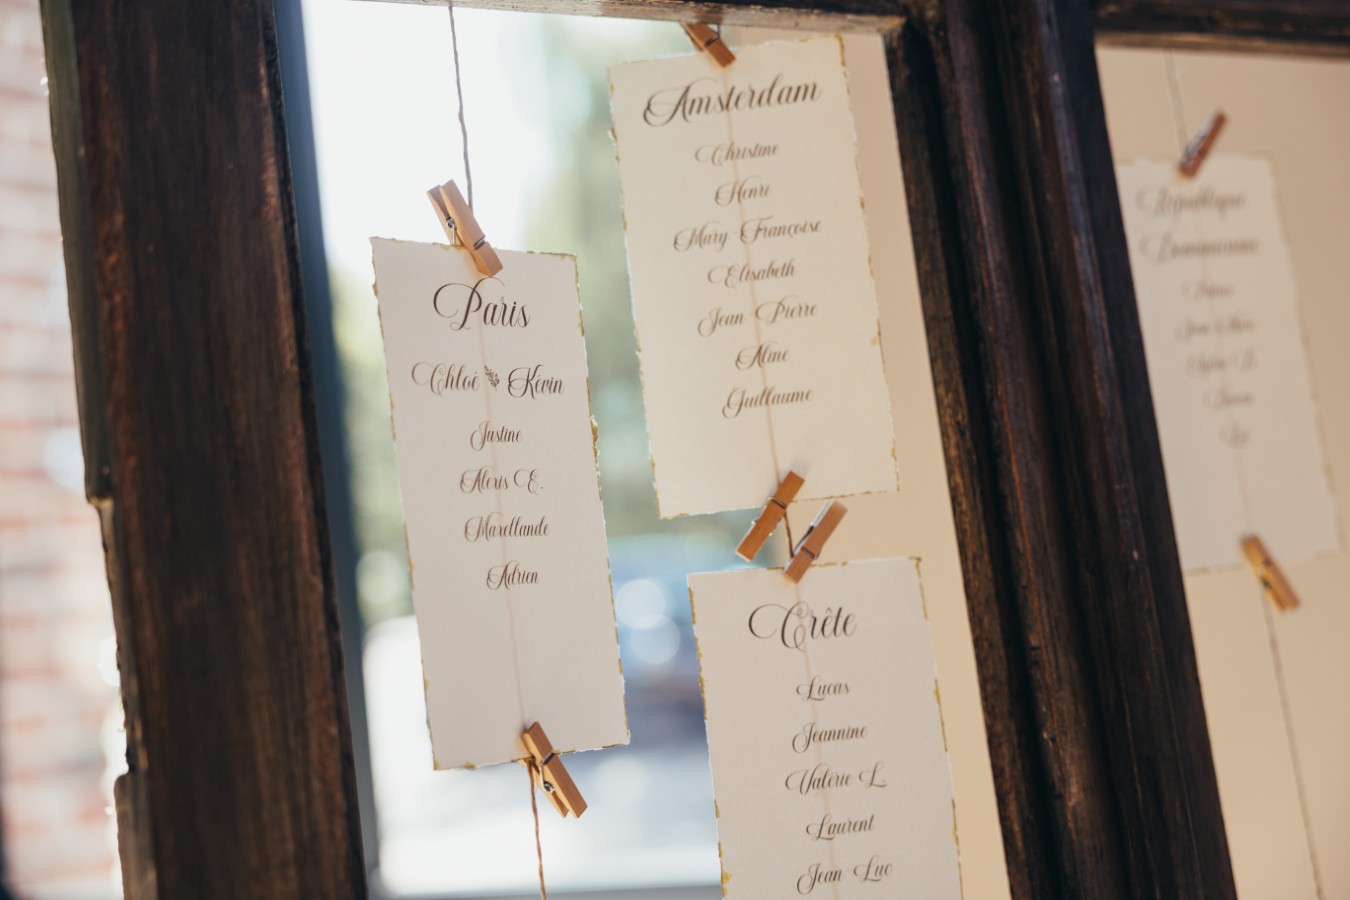 Paris
Chloé & Kévin
Justine
Alexis E.
Maxellande
Adrien
Amsterdam
Christine
Henri
Mary-Françoise
Elisabeth
Jean-Pierre
Aline
Guillaume
Crête
Lucas
Jeannine
Valérie L.
Laurent
Jean-Luc
République
Dominicaine